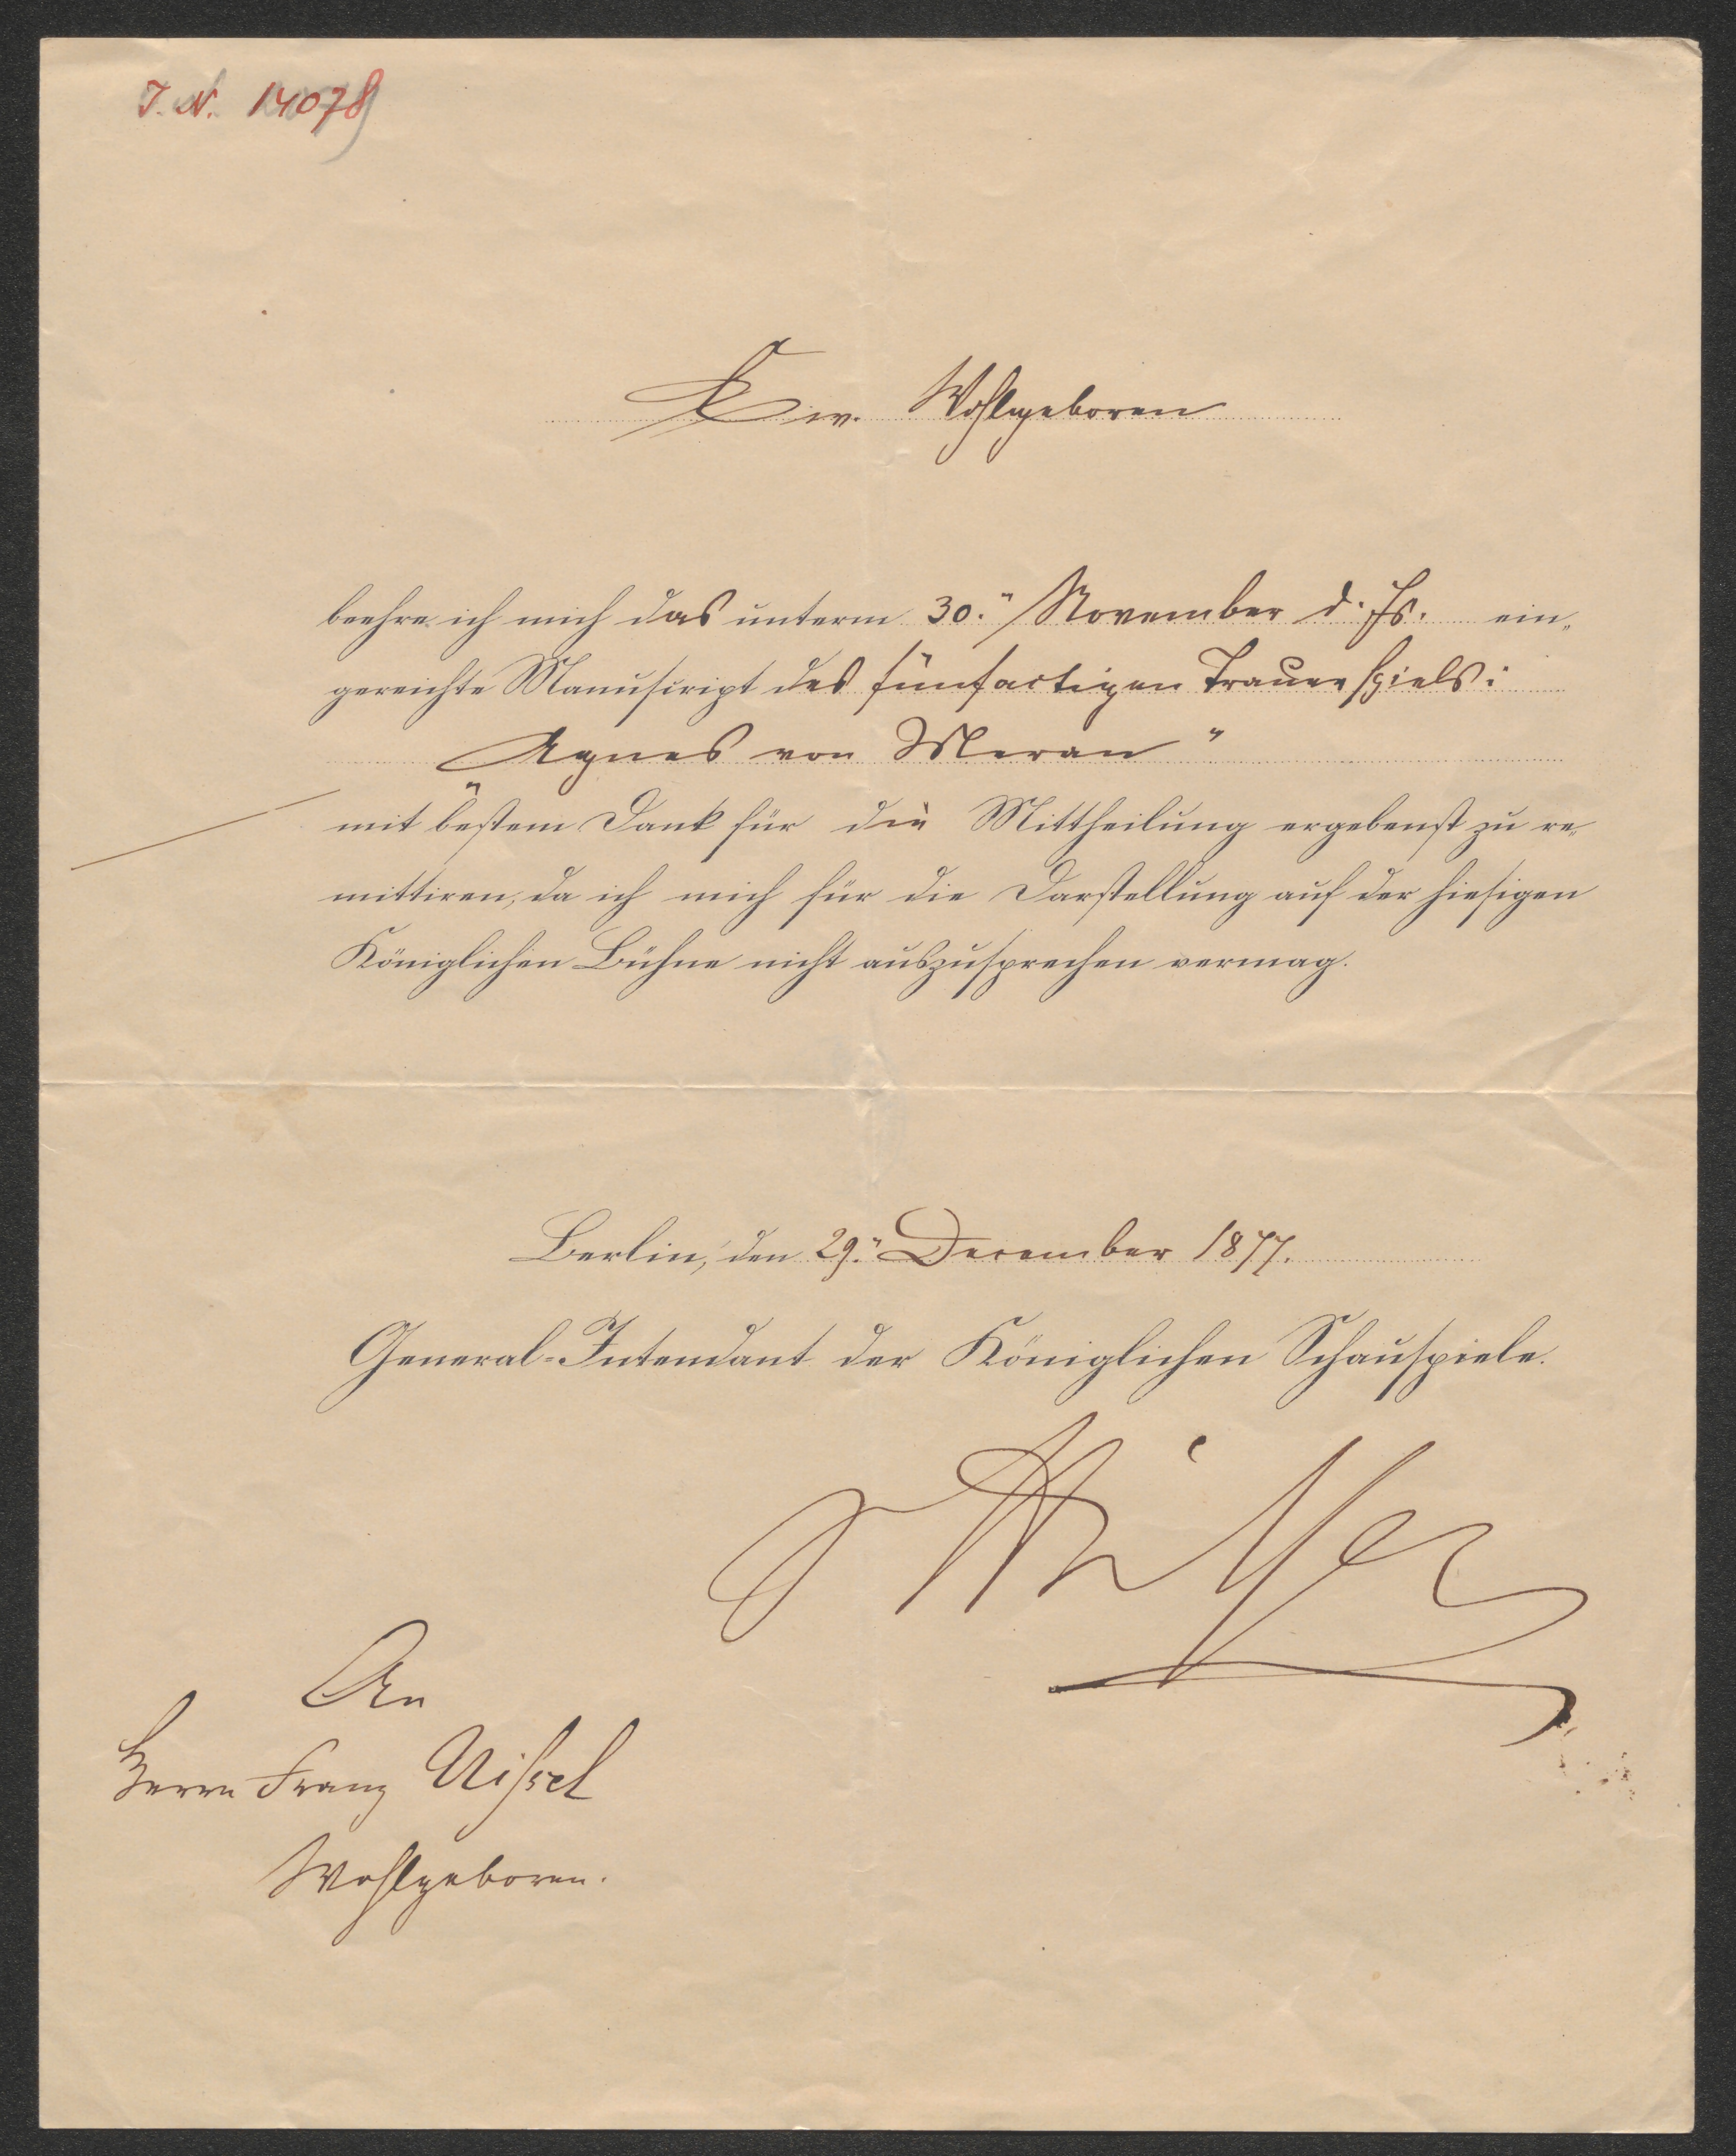 J. N. 14078
Ew. Wohlgeboren
beehre ich mich das unterm 30.ⁿ November d. Js. ein„
gereichte Manuscript des fünfactigen Trauerspiels:
„Agnes von Meran“
mit bestem Dank für die Mittheilung ergebenst zu re„
mittiren, da ich mich für die Darstellung auf der hiesigen
Königlichen Bühne nicht auszusprechen vermag.
Berlin, den 29.ⁿ December 1877.
General-Intendant der Königlichen Schauspiele.
An
Herrn Franz Nissel
Wohlgeboren.